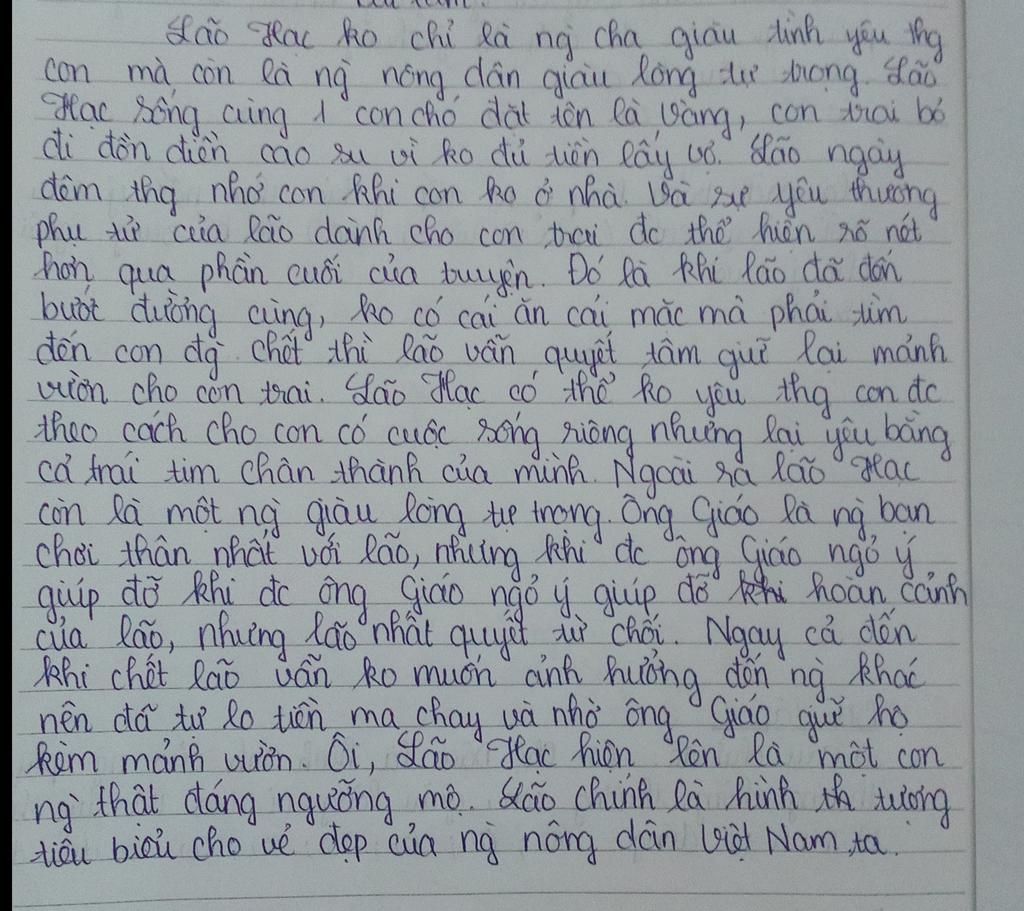 Lão Hạc ko chỉ là ng cha giàu tình yêu thg
con mà còn là ng nông dân giàu lòng tự trọng. Lão
Hạc sống cùng 1 con chó đặt tên là Vàng, con trai bỏ
đi đồn điền cao su vì ko đủ tiền lấy vợ. Lão ngày
đêm thg nhớ con khi con ko ở nhà. Và sự yêu thương
phụ tử của lão dành cho con trai đc thể hiện rõ nét
hơn qua phần cuối của truyện. Đó là khi lão đã đến
bước đường cùng, ko có cái ăn cái mặc mà phải tìm
đến con đg chết thì lão vẫn quyết tâm giữ lại mảnh
vườn cho con trai. Lão Hạc có thể ko yêu thg con đc
theo cách cho con có cuộc sống riêng nhưng lại yêu bằng
cả trái tim chân thành của mình. Ngoài ra lão Hạc
còn là một ng giàu lòng tự trọng. Ông Giáo là ng bạn
chơi thân nhất với lão, nhưng khi đc ông Giáo ngỏ ý
giúp đỡ khi đc ông Giáo ngỏ ý giúp đỡ khi hoàn cảnh
của lão, nhưng lão nhất quyết từ chối. Ngay cả đến
khi chết lão vẫn ko muốn ảnh hưởng đến ng khác
nên đã tự lo tiền ma chay và nhờ ông Giáo giữ hộ
kèm mảnh vườn. Ôi, Lão Hạc hiện lên là một con
ng thật đáng ngưỡng mộ. Lão chính là hình tượng
tiêu biểu cho vẻ đẹp của ng nông dân Việt Nam ta.